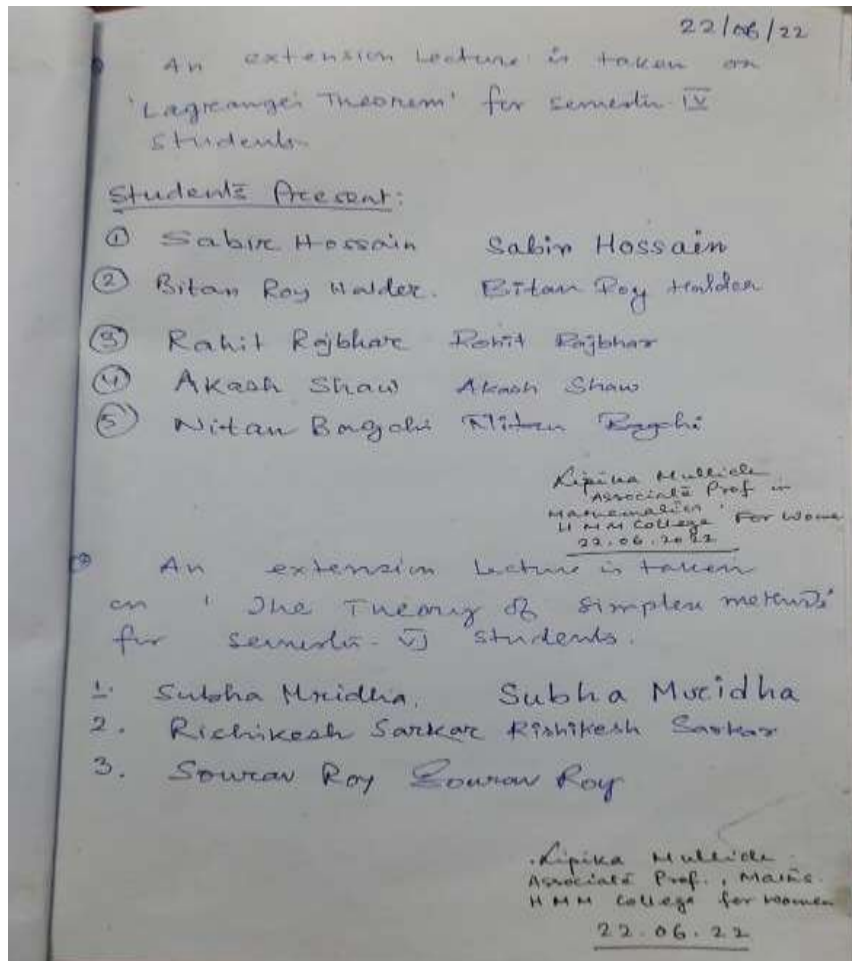 22/06/22
An extension Lecture is taken on
'Lagrange's Theorem' for semester IV
students.
Students Present:
① Sabir Hossain Sabir Hossain
② Bitan Roy Halder. Bitan Roy Halder
③ Rahit Rajbhar Rohit Rajbhar
④ Akash Shaw Akash Shaw
⑤ Nitan Bagchi Nitan Bagchi
Lipika Mullick
Associate Prof in
Mathematics
HMM College For Women
22.06.2022
An extension Lecture is taken
on 'The Theory of Simplex method'
for semester-VI students.
1. Subha Mridha. Subha Mridha
2. Richikesh Sarkar Rishikesh Sarkar
3. Sourav Roy Sourav Roy
Lipika Mullick
Associate Prof., Maths.
HMM College for Women
22.06.22